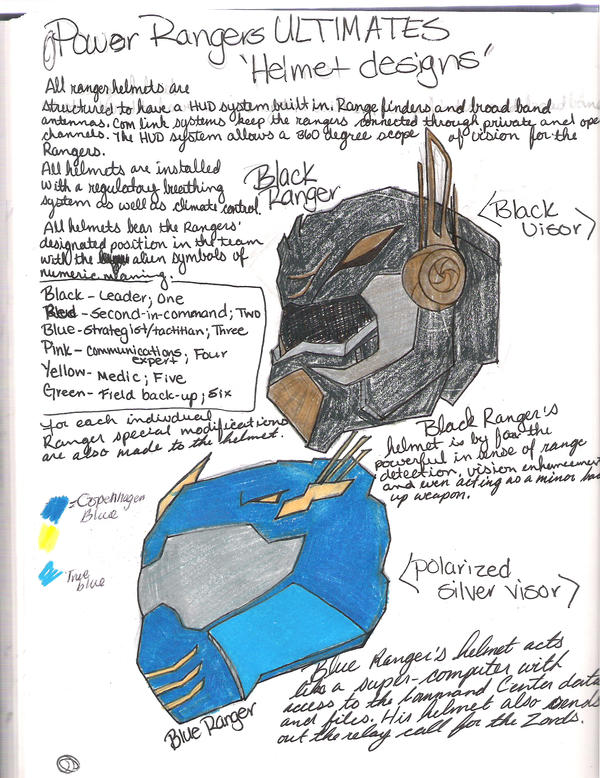 Power Rangers ULTIMATES
'Helmet designs'
All ranger helmets are
structured to have a HUD system built in. Range finders and broad band
antennas. Com link systems keep the rangers connected through private and ope
channels. The HUD system allows a 360 degree scope of vision for the
Rangers.
All helmets are installed
with a regulatory breathing
system as well as climate control.
All helmets bear the Rangers'
designated position in the team
with the alien symbols of
numeric meaning.
Black - Leader; One
Red - Second-in-command; Two
Blue - strategist/tactitian; Three
Pink - communications expert; Four
Yellow - Medic; Five
Green - Field back-up; Six
for each individual
Ranger special modifications
are also made to the helmet.
Black
Ranger
<Black
visor>
Black Ranger's
helmet is by far the
powerful in sense of range
detection, vision enhancemen
and even acting as a minor bac
up weapon.
=Copenhagen
Blue
True
blue
<polarized
silver visor>
Blue Ranger's helmet acts
like a super-computer with
access to the Command Center data
and files. His helmet also sends
out the relay call for the Zords.
Blue Ranger